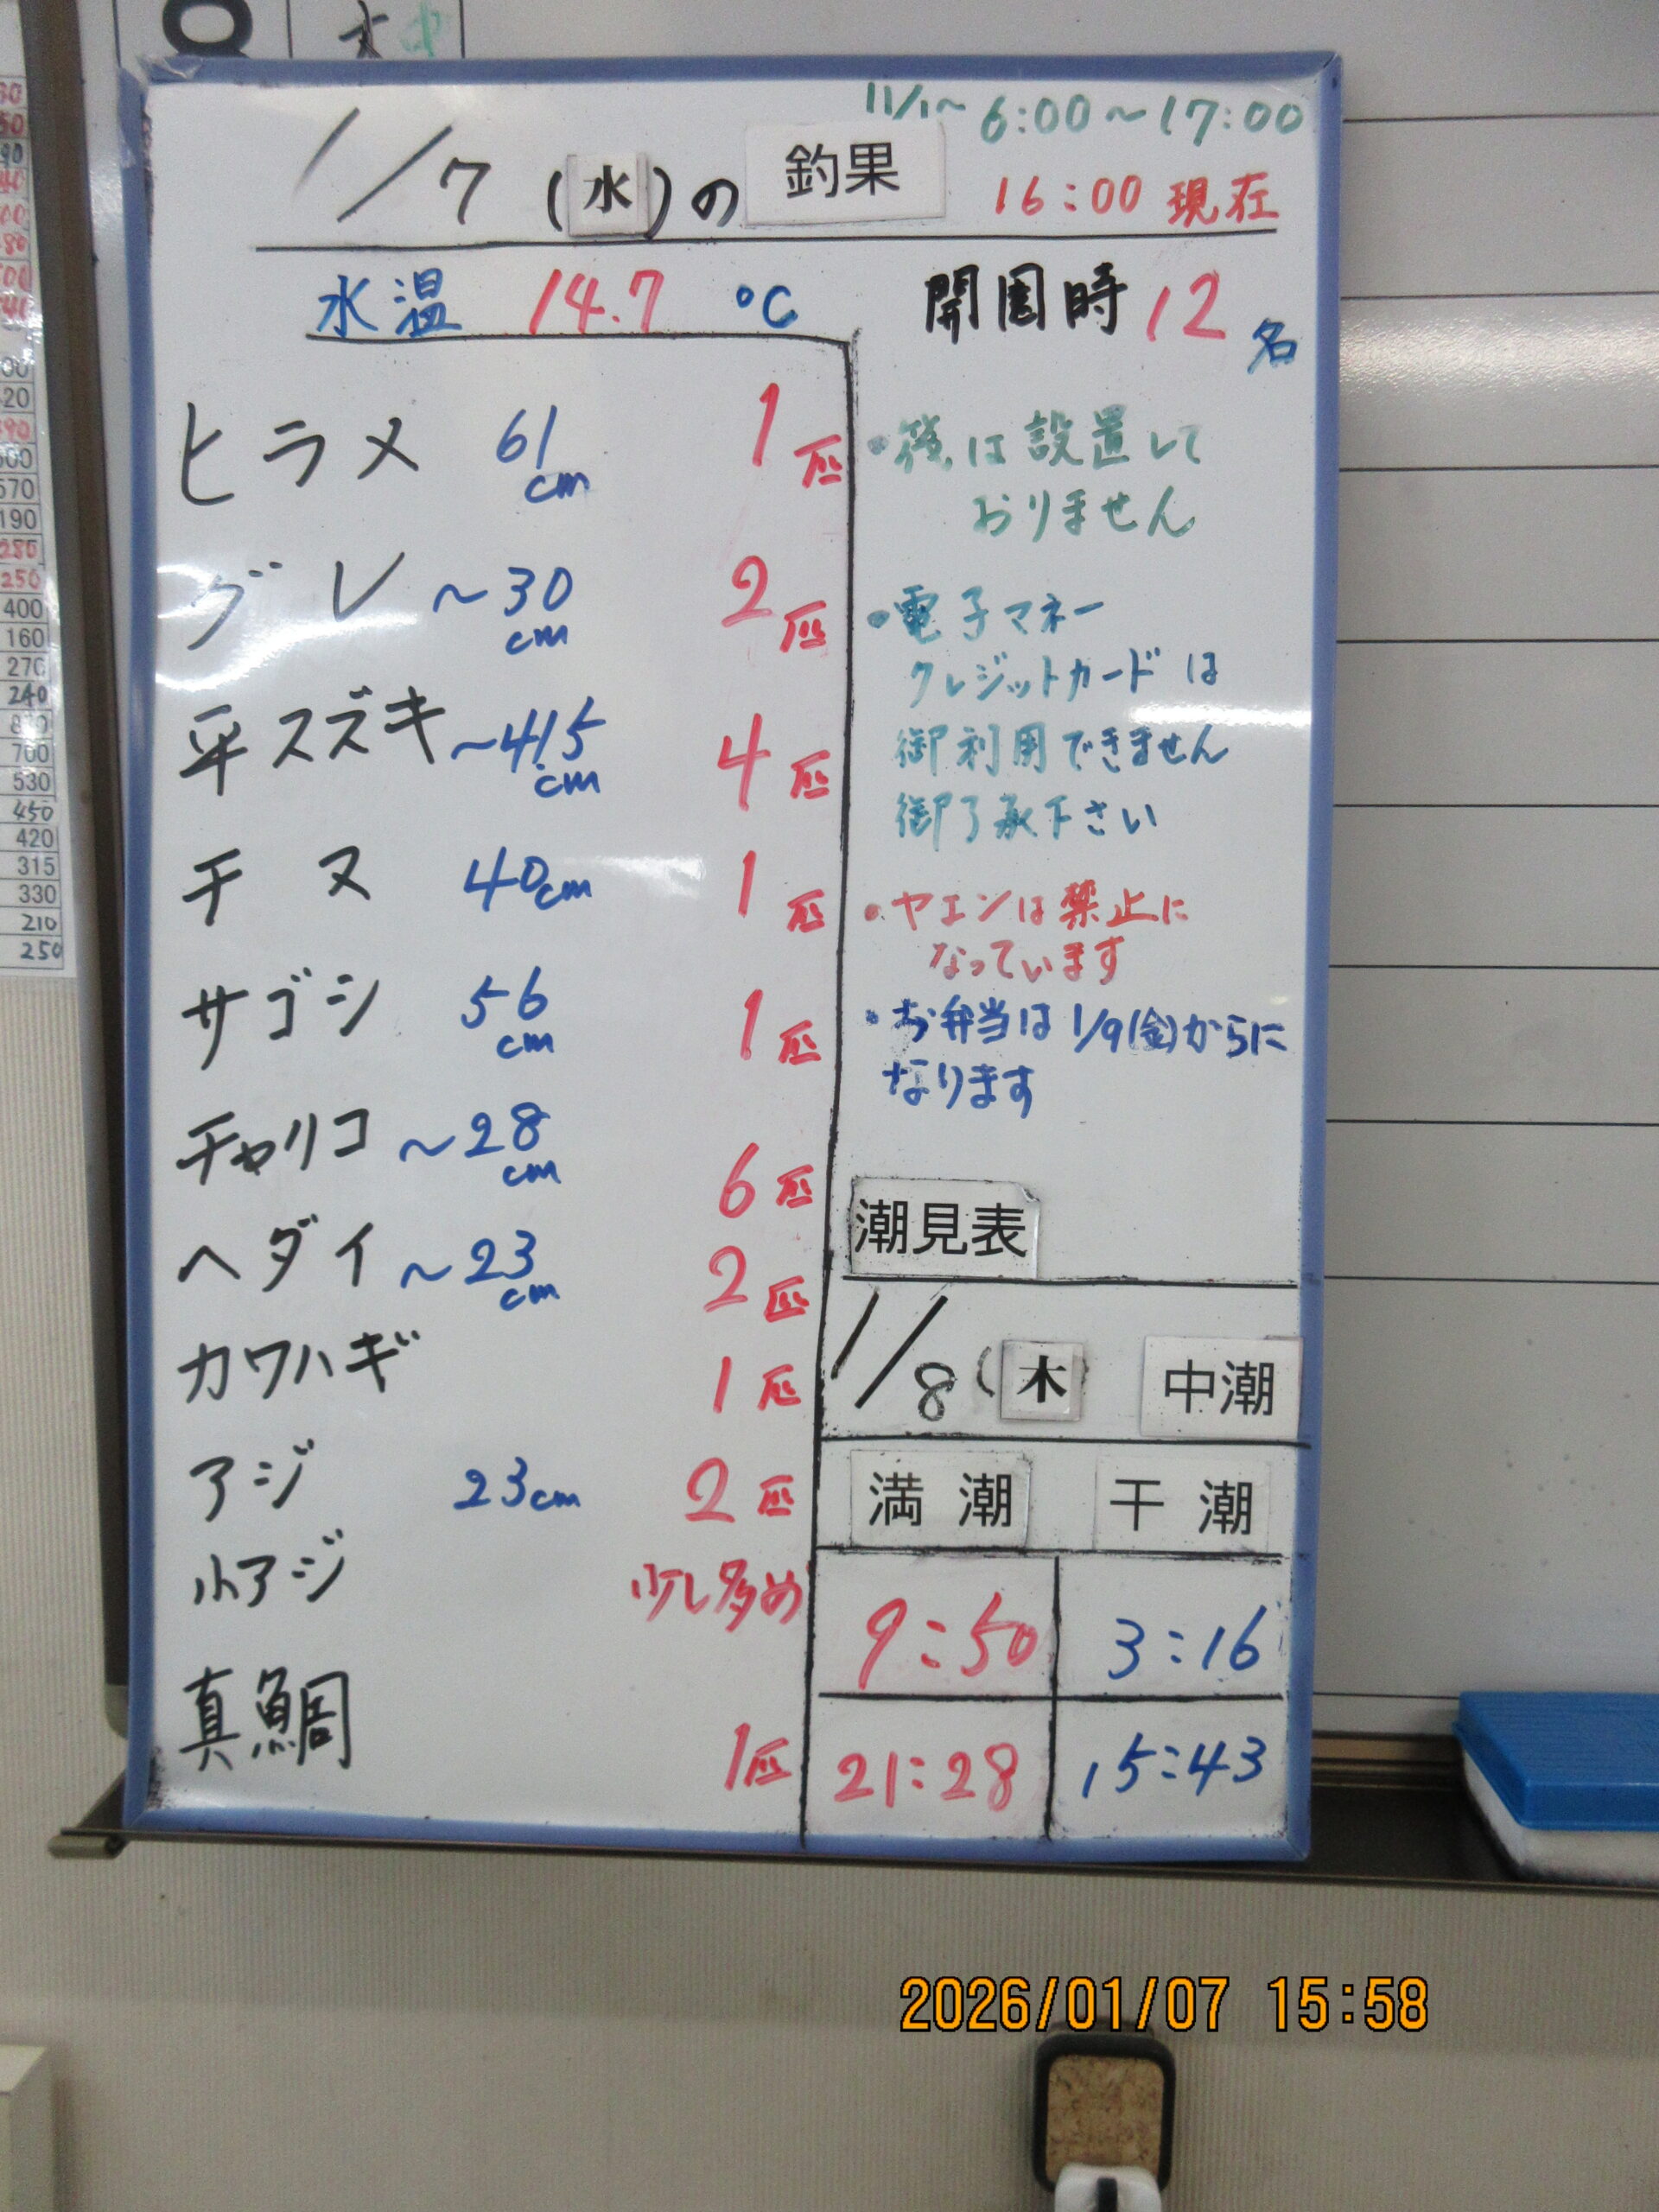 11/1～ 6:00～17:00
1/7(水)の 釣果
16:00 現在
水温 14.7 ℃
開園時 12名
ヒラメ 61cm 1匹
グレ ～30cm 2匹
平スズキ ～41.5cm 4匹
チヌ 40cm 1匹
サゴシ 56cm 1匹
チャリコ ～28cm 6匹
ヘダイ ～23cm 2匹
カワハギ 1匹
アジ 23cm 2匹
小アジ 少し多め
真鯛 1匹
は設置して
おりません
・電子マネー
クレジットカードは
御利用できません
御了承下さい
・ヤエンは禁止に
なっています
・お弁当は1/9(金)からに
なります
潮見表
1/8(木) 中潮
満潮 干潮
9:50 3:16
21:28 15:43
400
160
270
240
700
530
450
420
315
330
210
250
2026/01/07 15:58